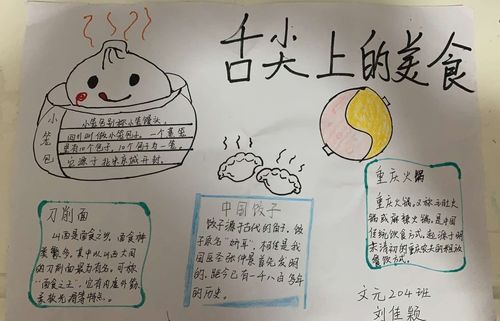 舌尖上的美食
小笼包
小笼包别称小笼馒头,
四川叫做小笼包子,一个蒸笼
里有10个包子,10个包子为一笼,
它源于北宋京城开封。
刀削面
山西是面食之乡,面食种
类繁多,其中以山西大同
的刀削面最为有名,可称
"面食之王",它有内虚外筋,
柔软光滑等特点。
中国饺子
饺子源于古代的角子。饺
子原名"娇耳",相传是我
国医圣张仲景首先发明
的,距今已有一千八百多年
的历史。
重庆火锅
重庆火锅,又称毛肚火
锅或麻辣火锅,是中国
传统饮食方式,起源于明
末清初的重庆
餐饮方式。
文元204班
刘佳颖